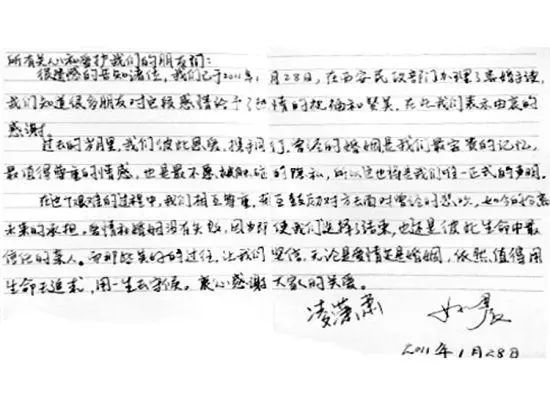 所有关心和爱护我们的朋友们：
很遗憾的告知诸位，我们已于2011年1月28日，在西安民政部门办理了离婚手续，
我们知道很多朋友对这段感情给予了热情的祝福和赞美，在此我们表示由衷的
感谢。
过去的岁月里，我们彼此恩爱，携手同行，曾经的婚姻是我们最宝贵的记忆，
最值得尊重的情感，也是最不愿被触碰的隐私，所以这也将是我们唯一正式的声明。
在这个艰难的过程中，我们相互尊重，对方去面对曾经的悲欢，如今的分离
未来的承担。爱情和婚姻没有失败，因为即使我们选择了结束，也还是彼此生命中最
信任的亲人。而那些美好的过往，让我们坚信，无论是爱情还是婚姻，依然值得用
生命去追求，用一生去守候。衷心感谢大家的关爱。
凌潇肃 姚晨
2011年1月28日